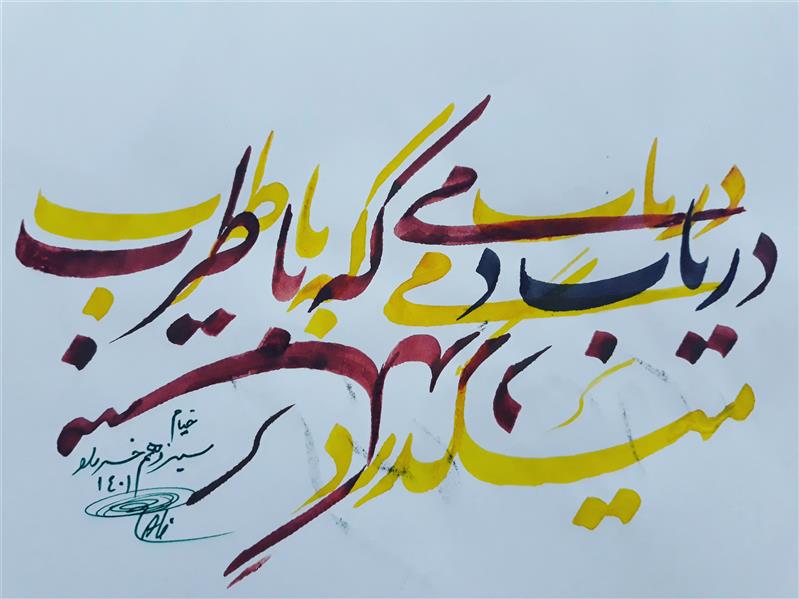 دریاب دمی که با طرب
میگذرد
خیام
سیزدهم خرداد
۱۴۰۱